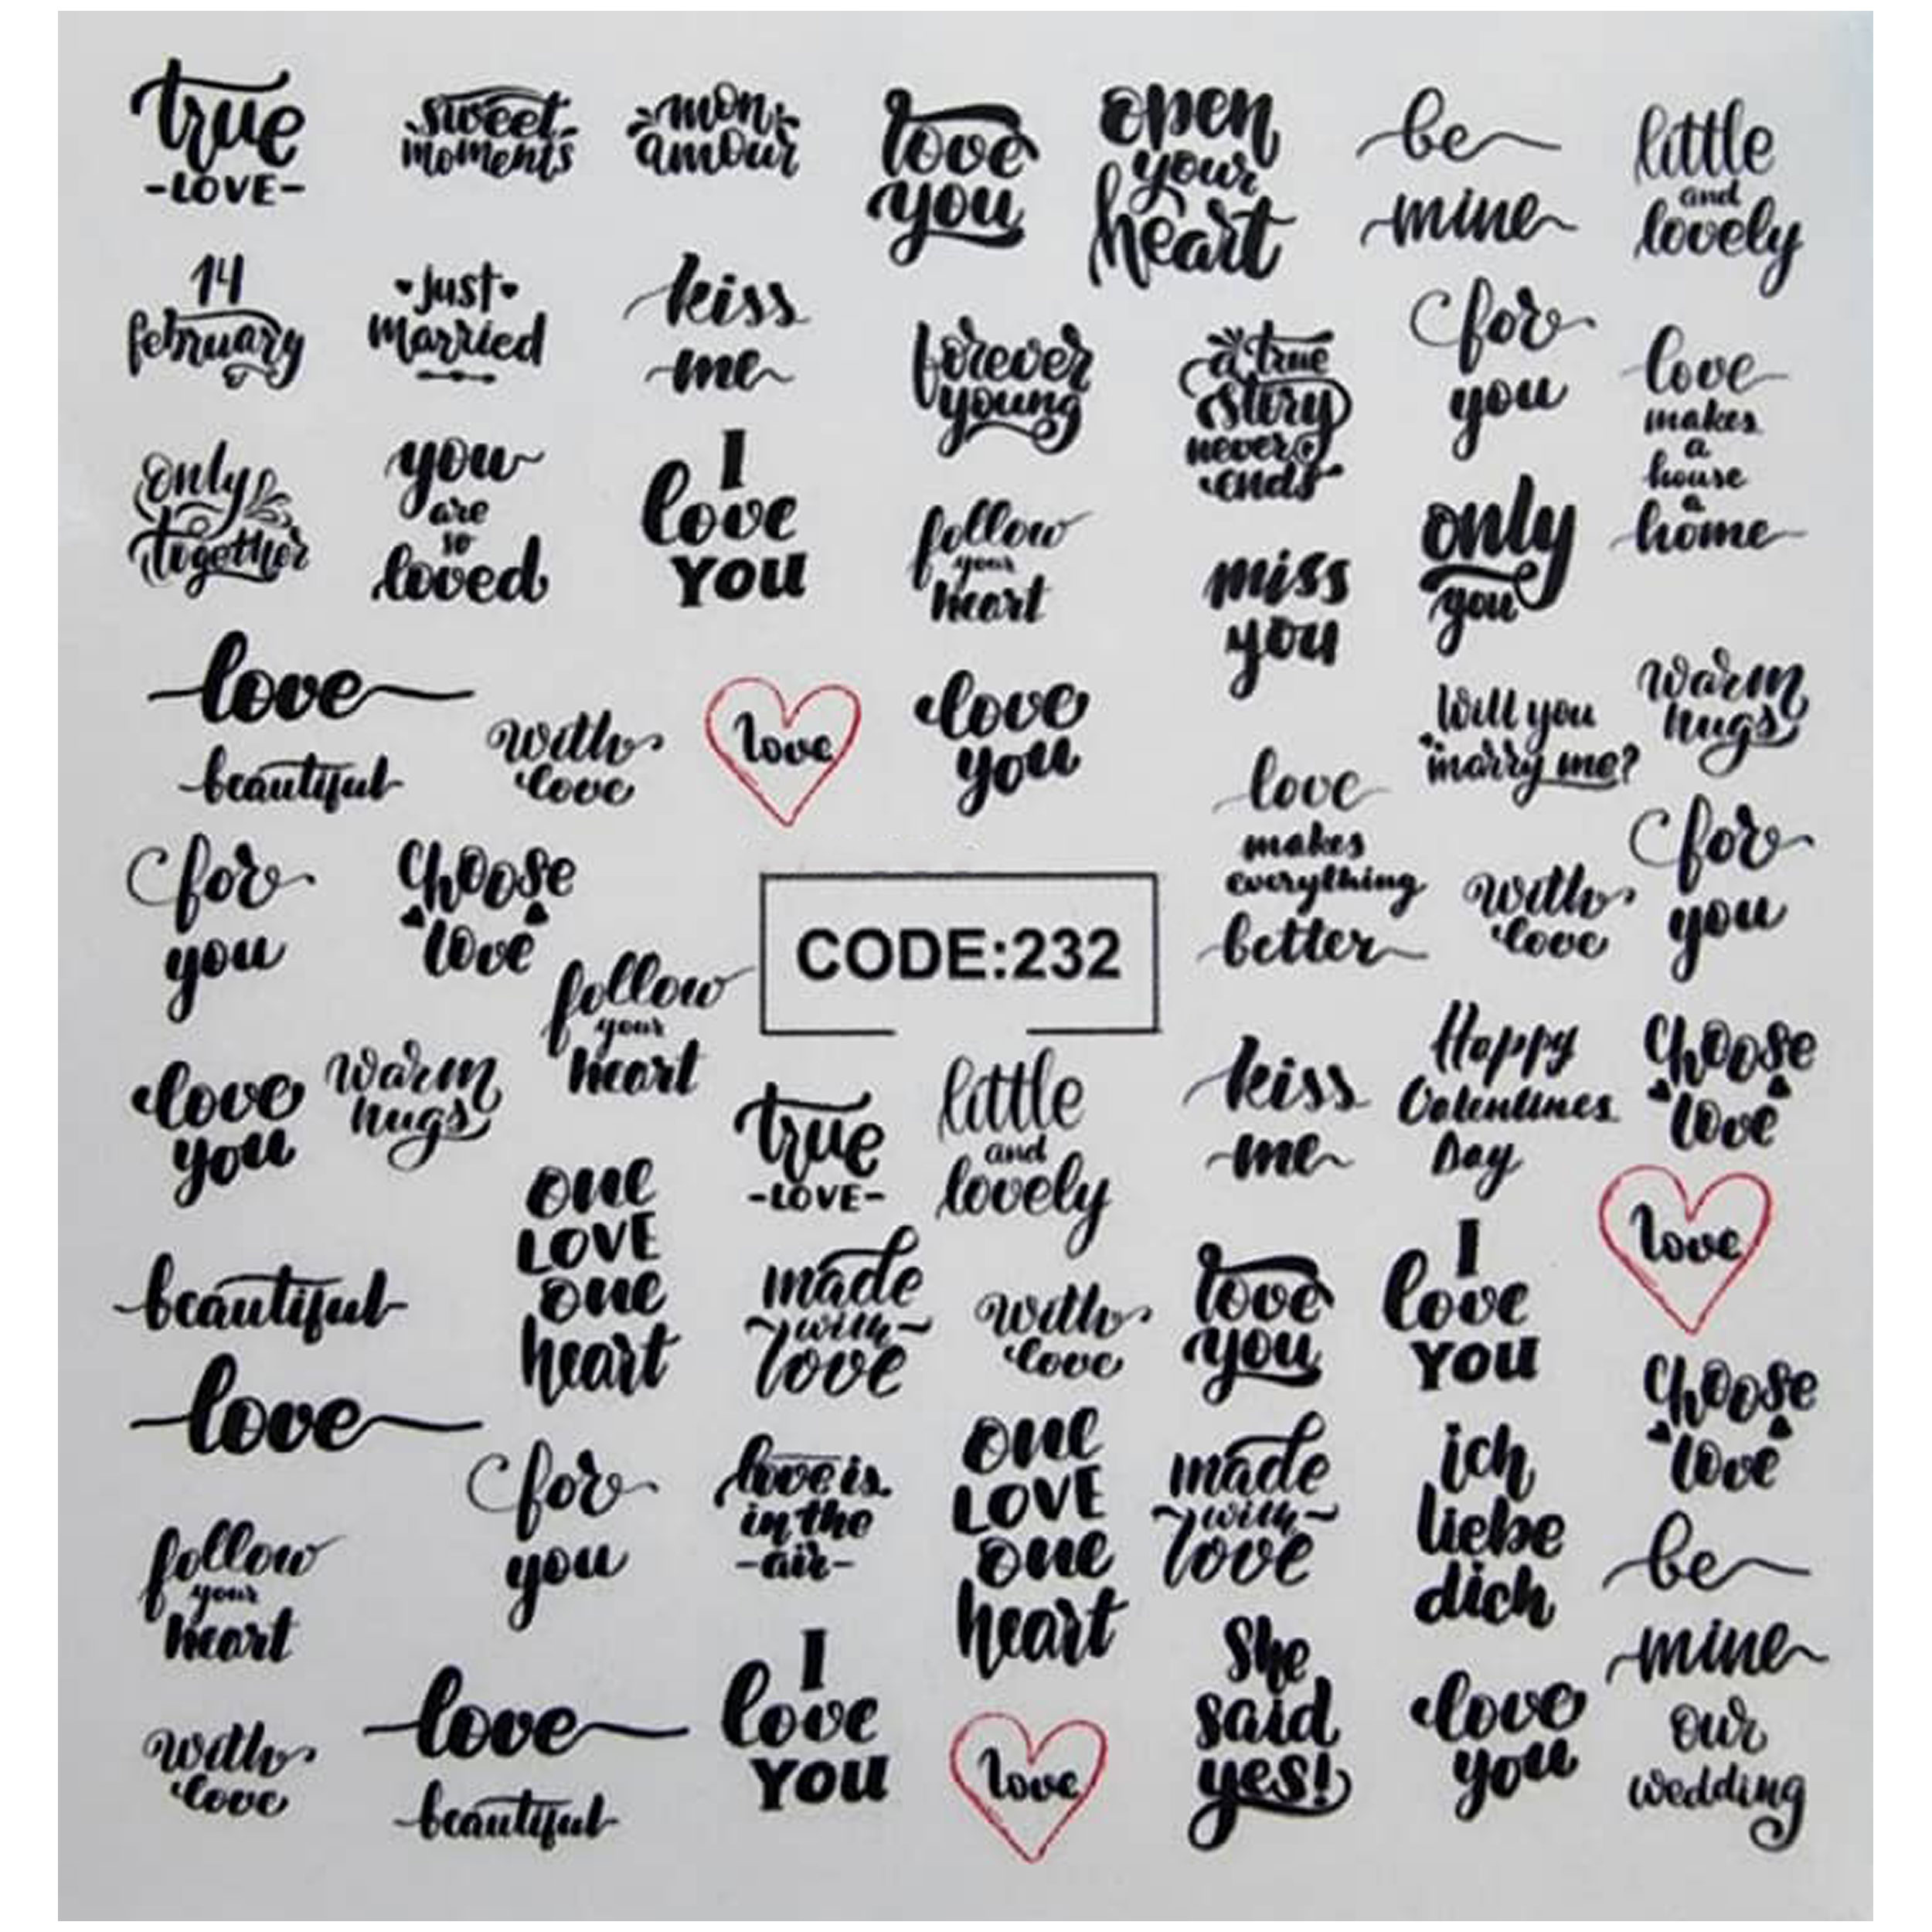 true
-LOVE-
sweet
moments
mon
amour
love
you
open
your
heart
be
mine
little
and
lovely
14
february
just
married
kiss
me
forever
young
a true
story
never
ends
for
you
love
makes
a
house
a
home
only
together
you
are
so
loved
I
love
YOU
follow
your
heart
miss
you
only
you
love
beautiful
with
love
love
love
you
Will you
marry me?
warm
hugs
love
makes
everything
better
with
love
for
you
for
you
choose
love
follow
your
heart
CODE:232
love
you
warm
hugs
true
-LOVE-
little
and
lovely
kiss
me
Happy
Valentines
Day
choose
love
one
LOVE
one
heart
love
beautiful
made
with
love
with
love
love
you
I
love
YOU
choose
love
love
for
you
love is
in the
-air-
one
LOVE
one
heart
made
with
love
ich
liebe
dich
be
mine
follow
your
heart
with
love
love
beautiful
I
love
YOU
love
She
said
yes!
love
you
our
wedding